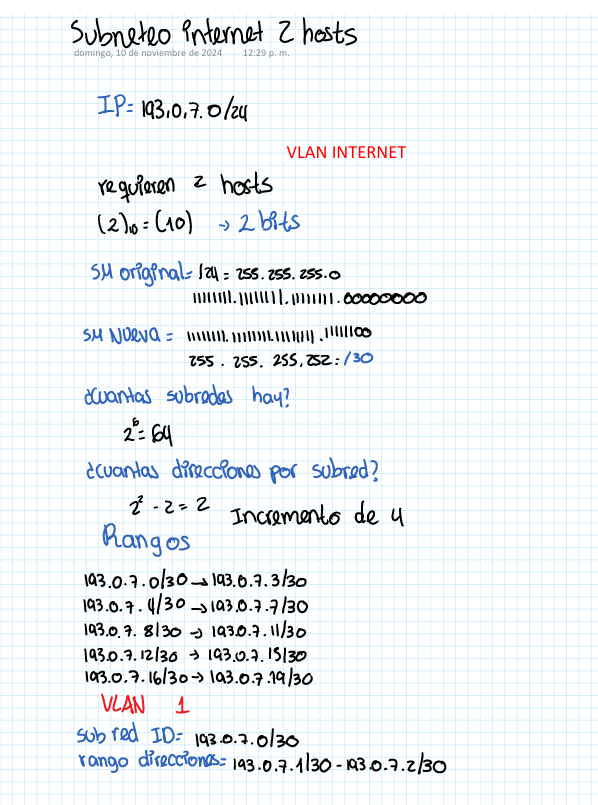 Subneteo internet 2 hosts
domingo, 10 de noviembre de 2024 12:29 p. m.
IP= 193.0.7.0/24
VLAN INTERNET
requieren 2 hosts
(2)₁₀ = (10) → 2 bits
SM original= /24 = 255.255.255.0
11111111.11111111.11111111.00000000
SM Nueva = 11111111.11111111.11111111.11111100
255.255.255.252 = /30
¿Cuantas subredes hay?
2⁶ = 64
¿Cuantas direcciones por subred?
2² - 2 = 2 Incremento de 4
Rangos
193.0.7.0/30 → 193.0.7.3/30
193.0.7.4/30 → 193.0.7.7/30
193.0.7.8/30 → 193.0.7.11/30
193.0.7.12/30 → 193.0.7.15/30
193.0.7.16/30 → 193.0.7.19/30
VLAN 1
sub red ID= 193.0.7.0/30
rango direcciones= 193.0.7.1/30 - 193.0.7.2/30